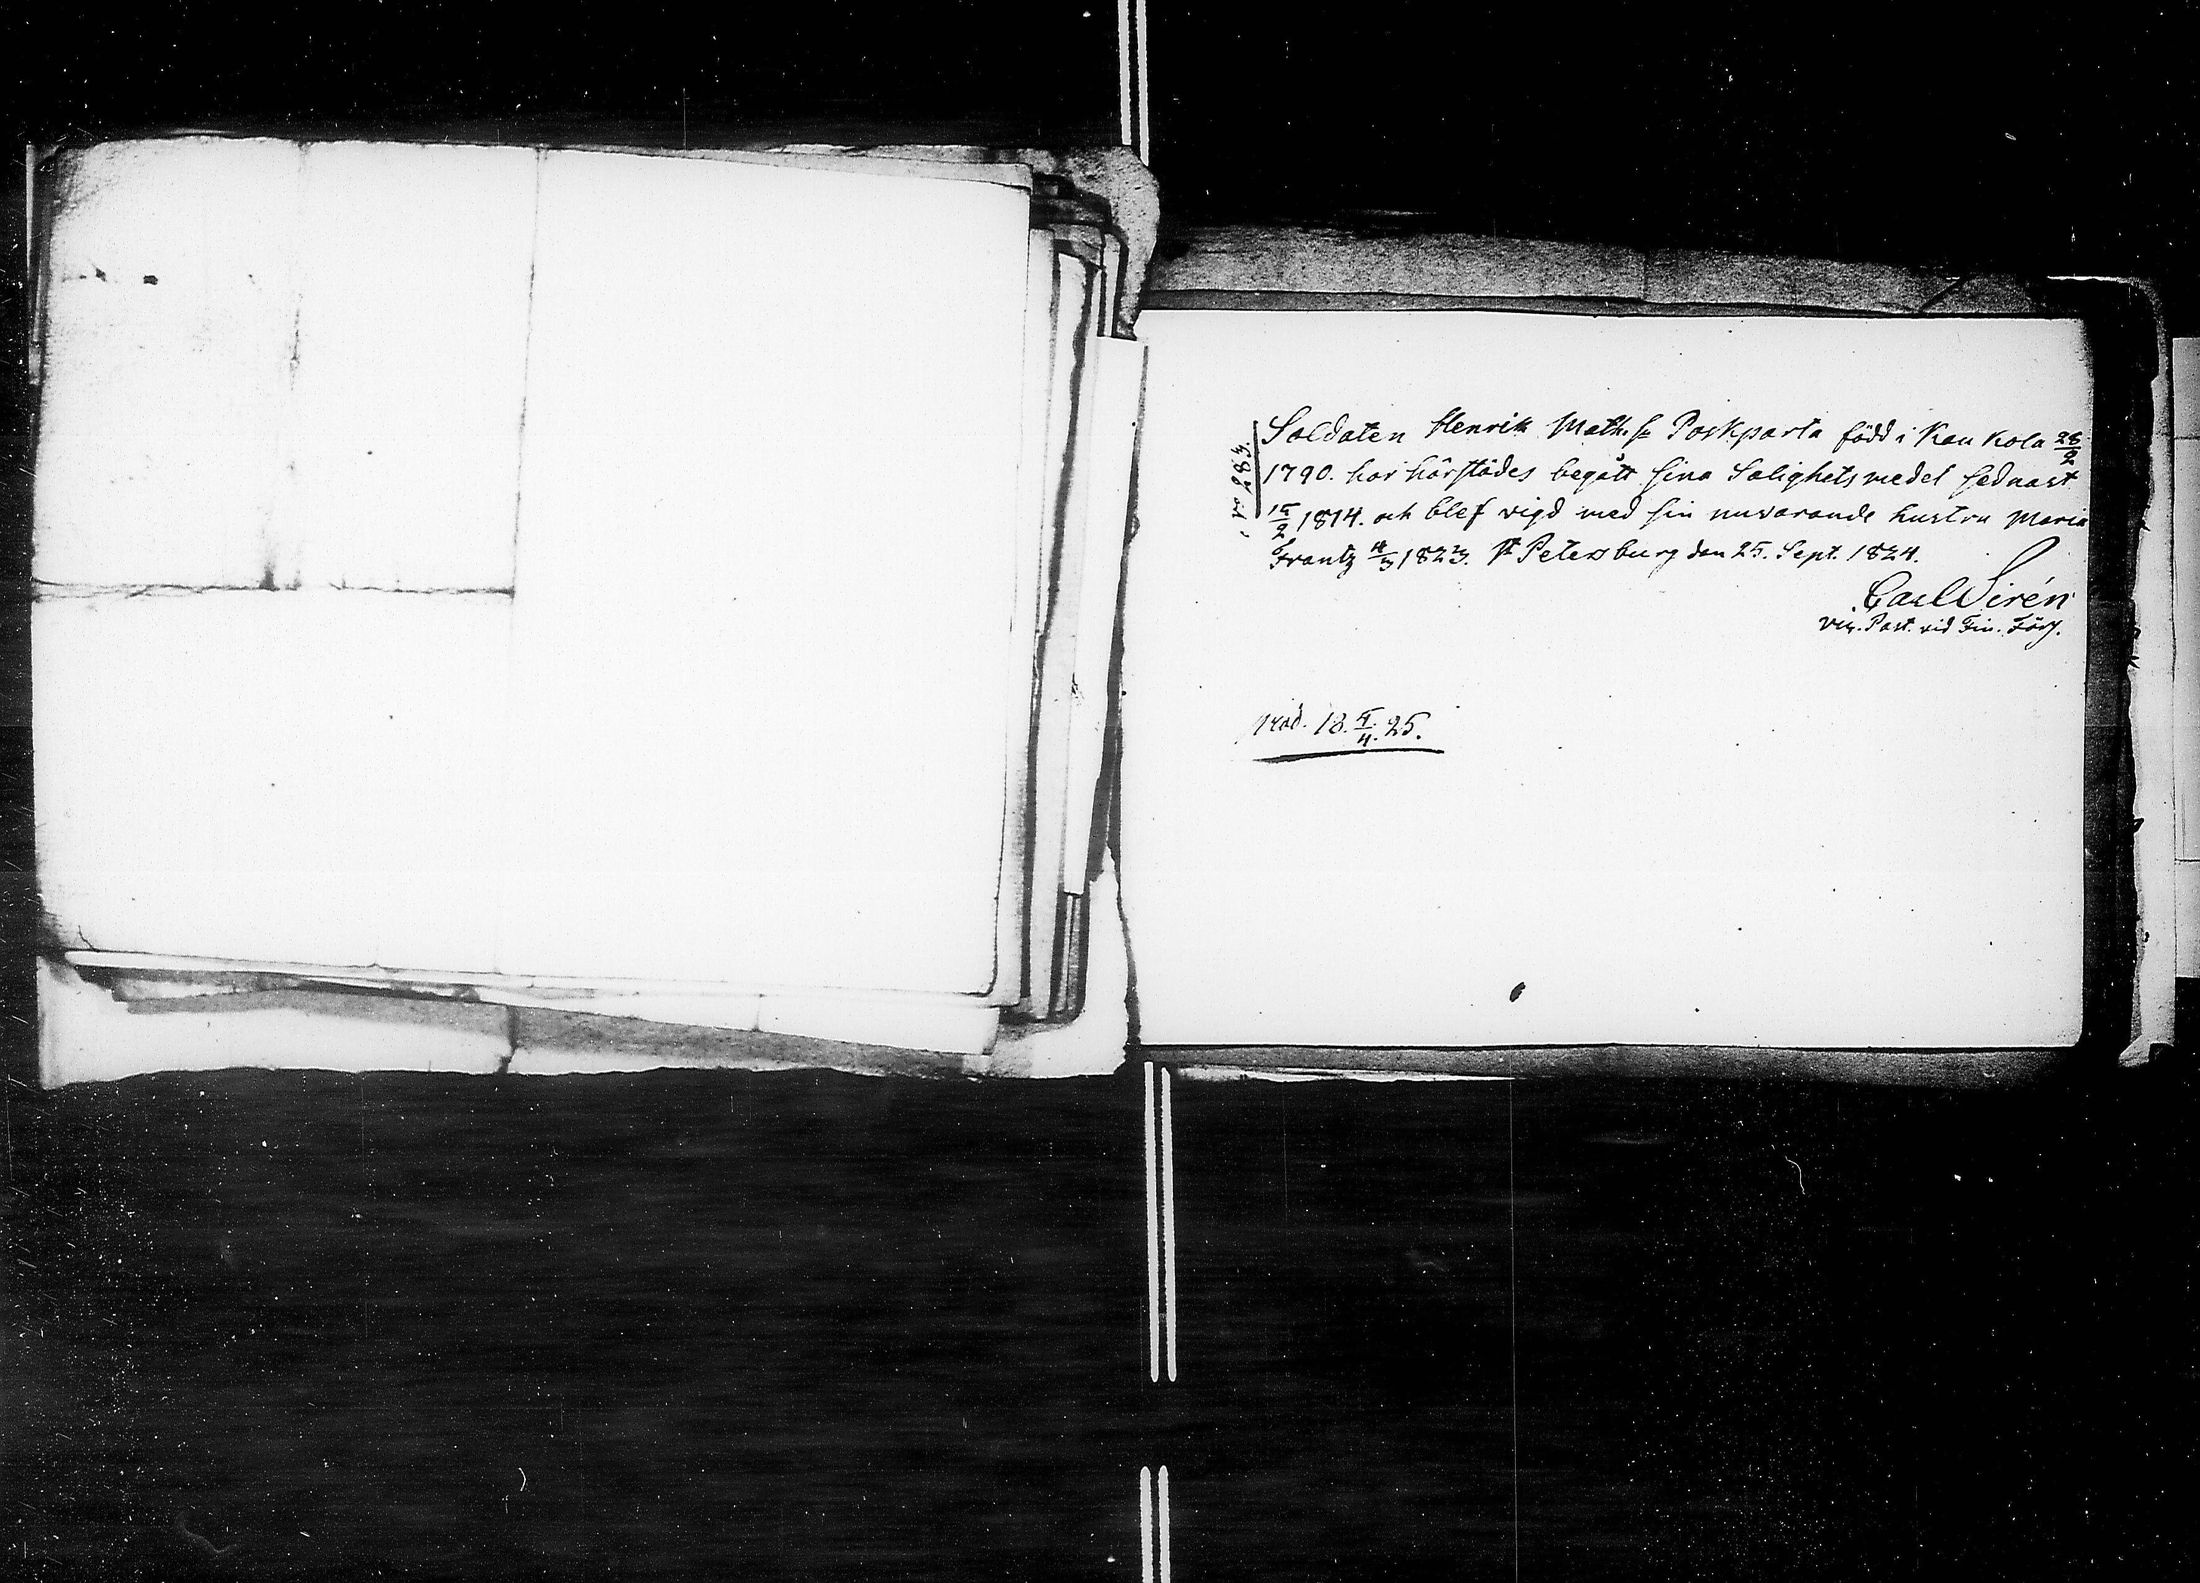 Soldaten Henrik Math. sn Poskparta född i Kaukola 28/2
1790. har härstädes begått sina Salighetsmedel sednast
15/2 1814. och blef vigd med sin nuvarande hustru Maria
Frantz 4/3 1823. St Petersburg den 25. Sept. 1824.
Carl Sirén
Vic. Past. vid Fin. Förs.
N:o 283.
prod. 18 5/4 25.